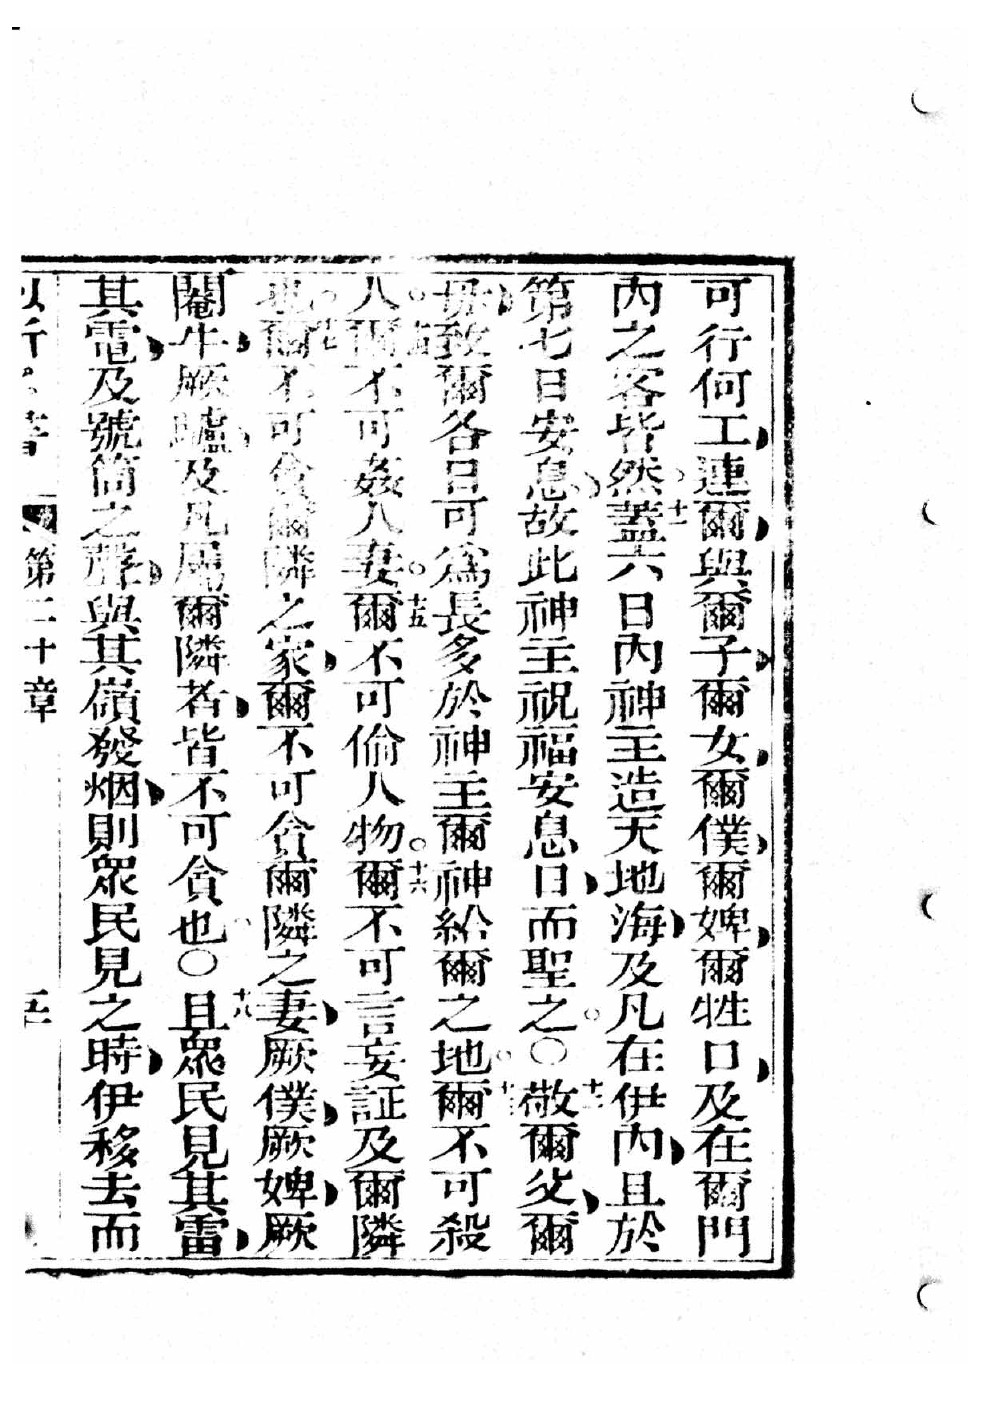 可行何工連爾與爾子爾女爾僕爾婢爾牲口及在爾門
內之客皆然○十一蓋六日內神主造天地海及凡在伊內且於
第七日安息故此神主祝福安息日而聖之○○十二敬爾父爾
母致爾各日可為長多於神主爾神給爾之地○十三爾不可殺
人○十四爾不可姦人妻○十五爾不可偷人物○十六爾不可言妄証及爾隣
也○十七爾不可貪爾隣之家爾不可貪爾隣之妻厥僕厥婢厥
閹牛厥驢及凡屬爾隣者皆不可貪也○○十八且眾民見其雷
其電及號筒之聲與其嶺發烟則眾民見之時伊移去而
第二十章